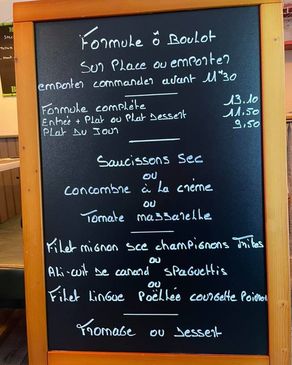 Formule ô Boulot
Sur Place ou emporter
emporter commander avant 11h30
Formule complète 13.10
Entrée + Plat ou Plat Dessert 11,50
Plat Du Jour 9,50
Saucissons Sec
ou
concombre à la crème
ou
Tomate mazzarelle
Filet mignon sce champignons Frites
ou
Ali-cuit de canard spaguettis
ou
Filet Lingue Poëllée courgette Poivron
Fromage ou Dessert